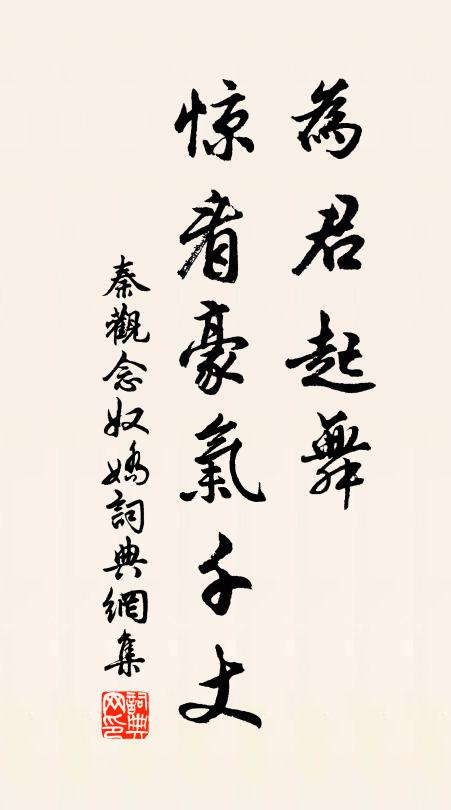 為君起舞
惊看豪氣千丈
秦觀念奴嬌詞典網集
詞典
网印